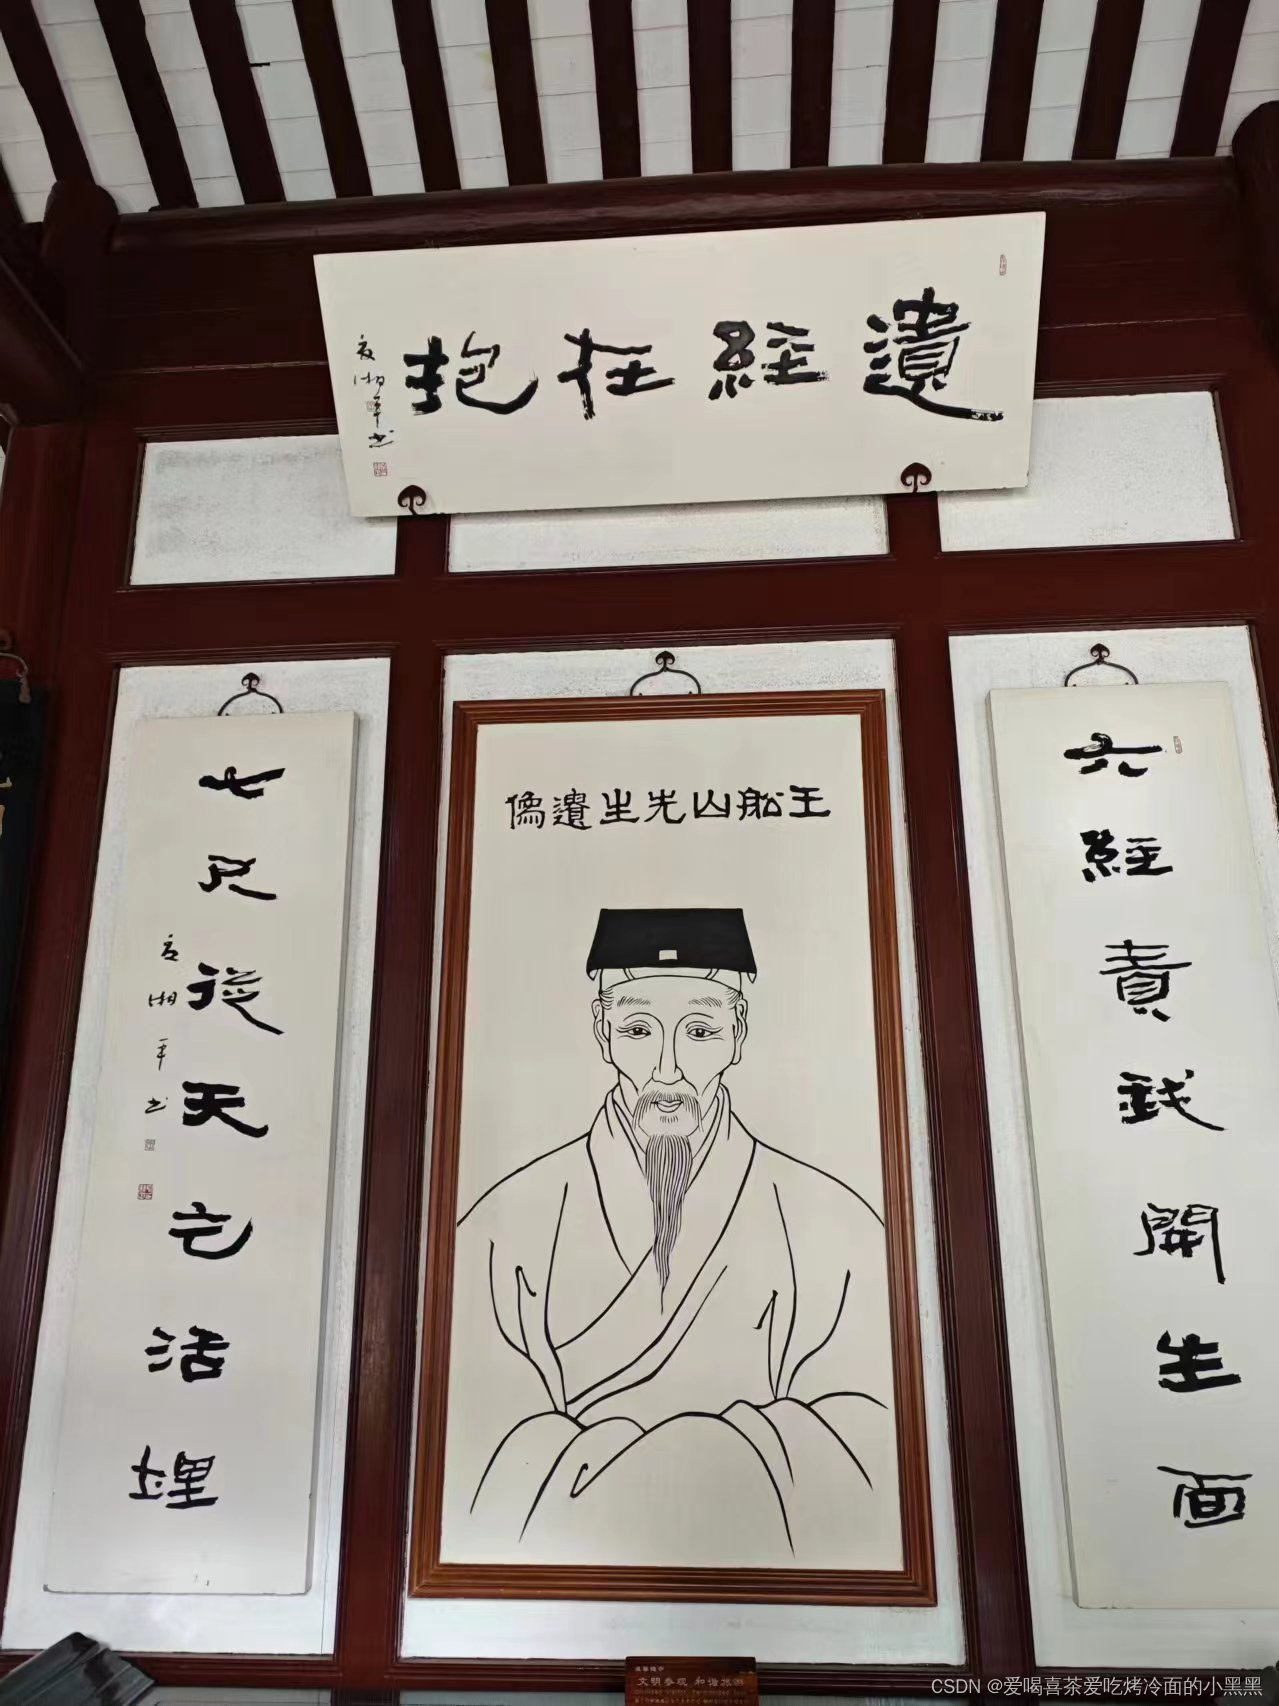 遺經在抱
夏湘平书
王船山先生遺像
六經責我開生面
七尺從天乞活埋
夏湘平书
文明参观 和谐旅游
CSDN @爱喝喜茶爱吃烤冷面的小黑黑